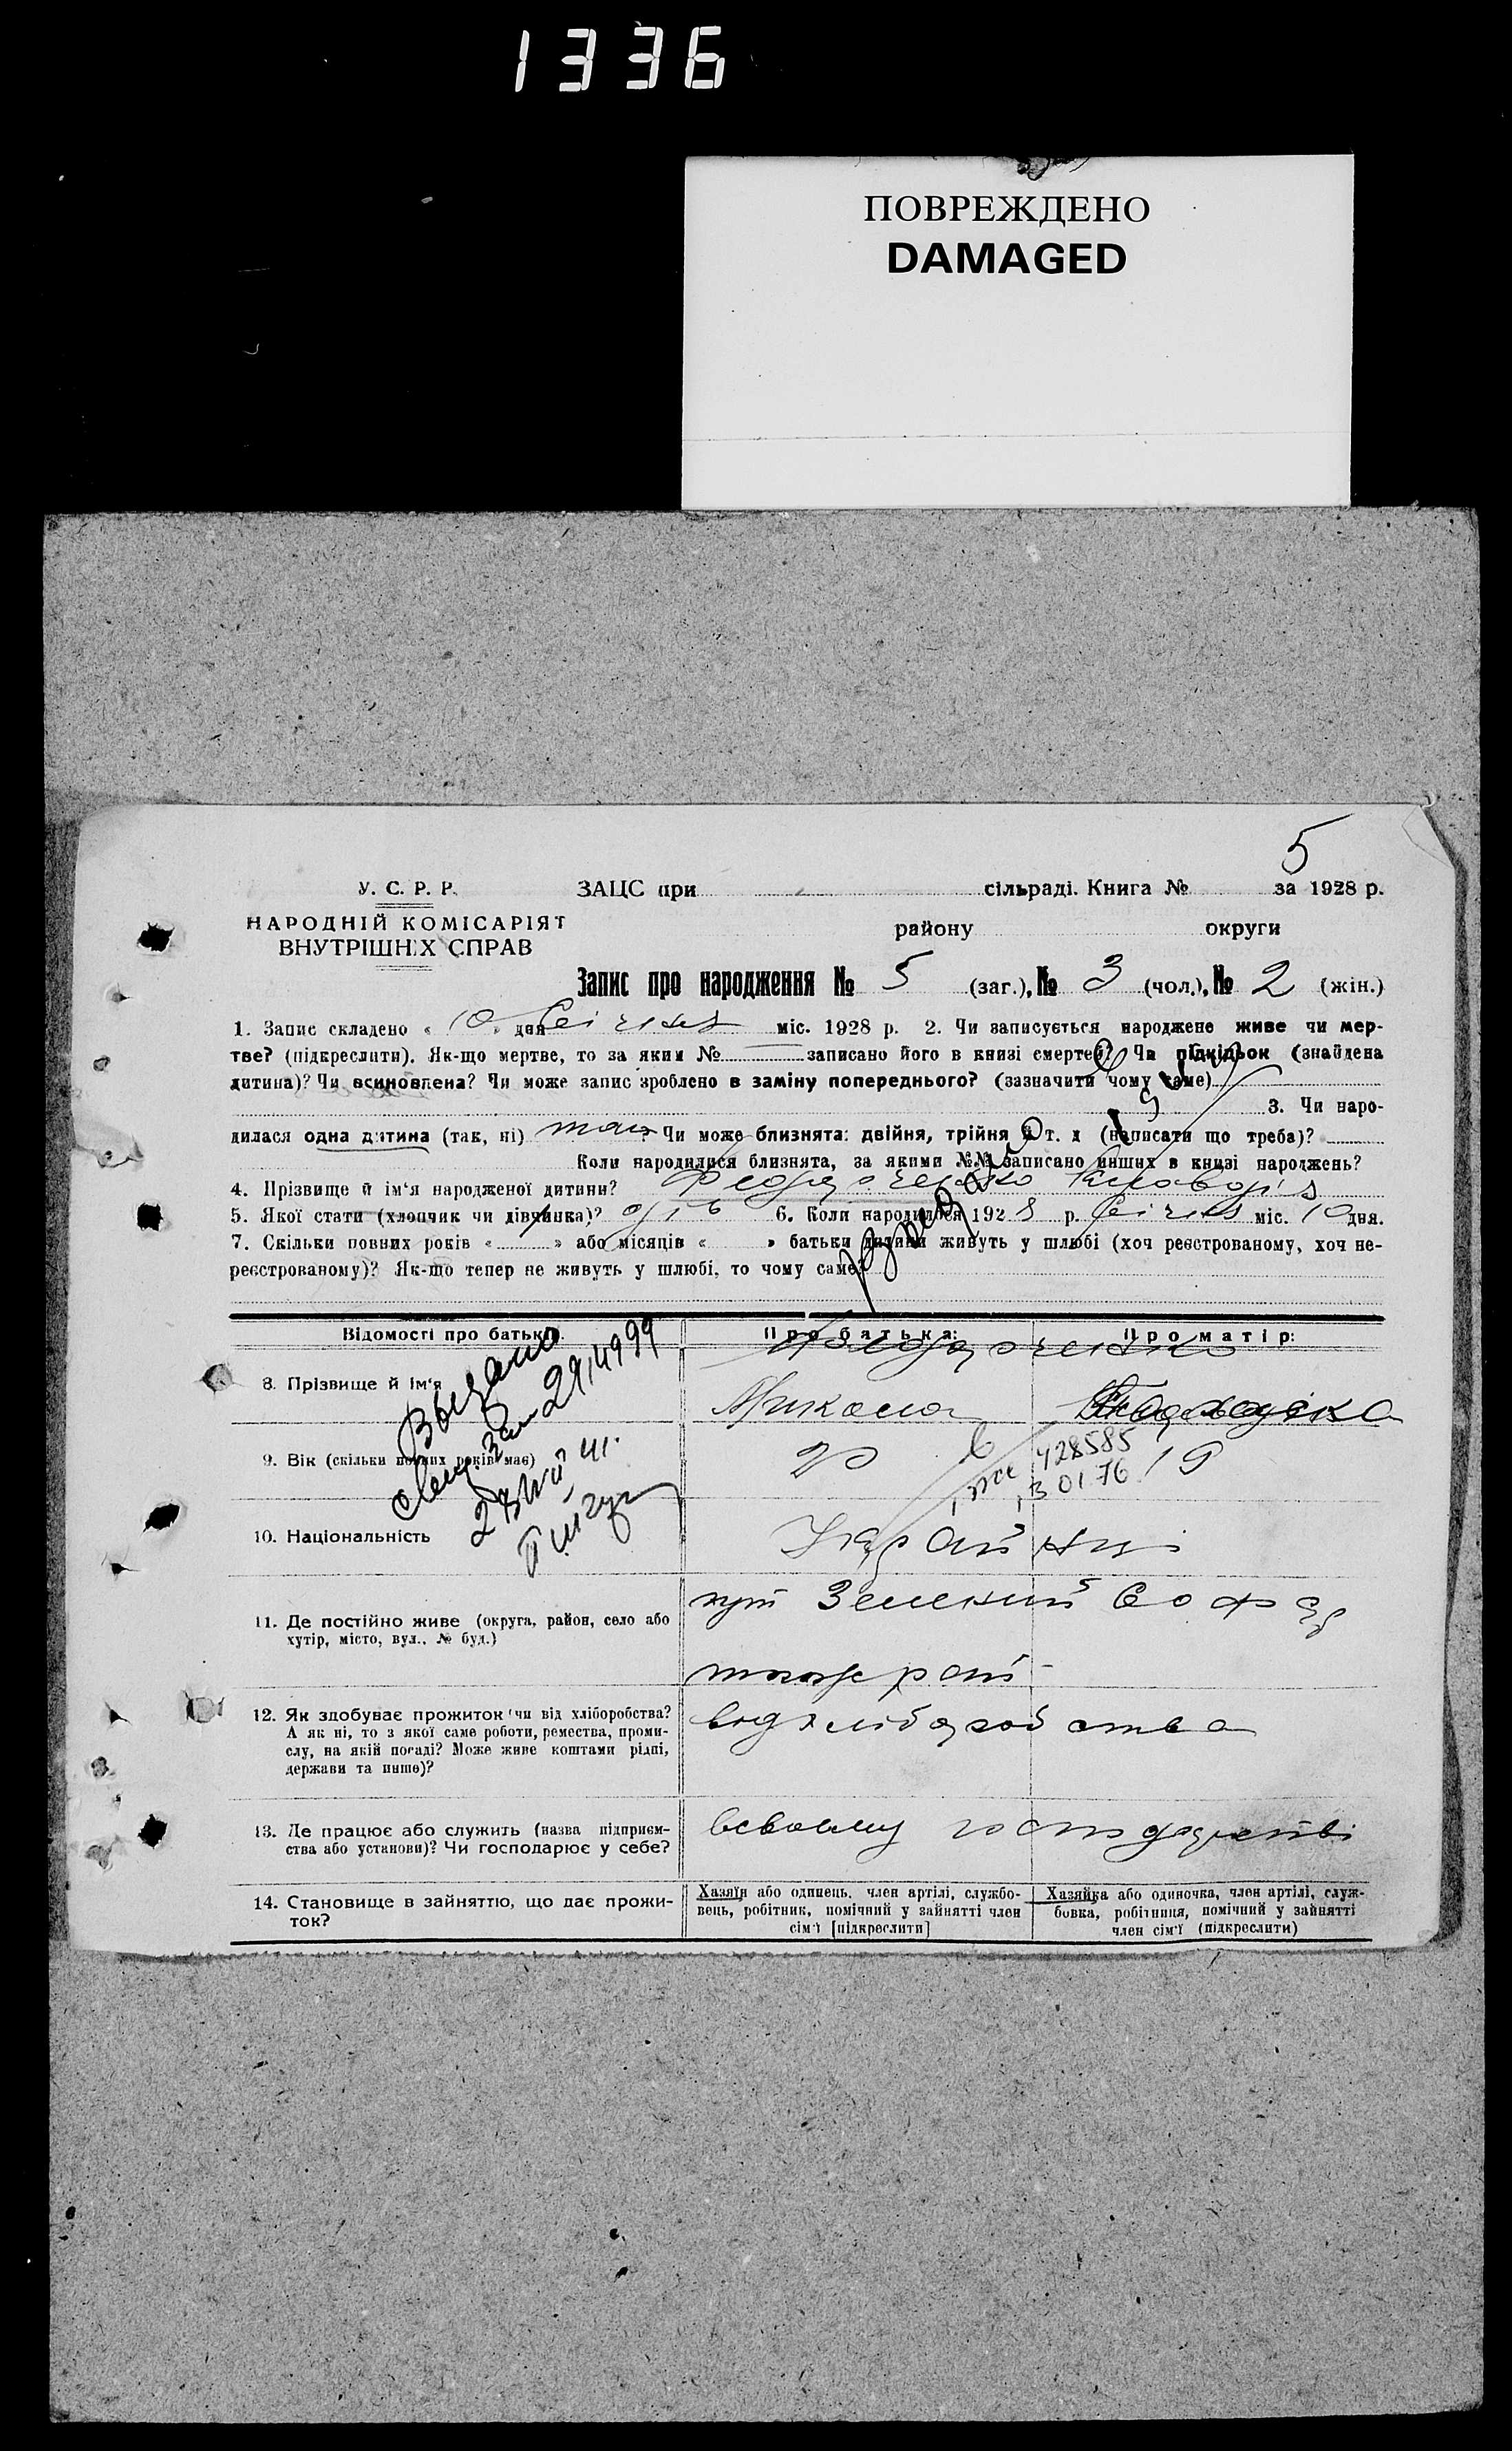 1336
ПОВРЕЖДЕНО
DAMAGED
5
У. С. Р. Р. ЗАЦС при сільраді. Книга № за 1928 р.
НАРОДНІЙ КОМІСАРІЯТ району округи
ВНУТРІШНІХ СПРАВ
Запис про народження № 5 (заг.), № 3 (чол.), № 2 (жін.)
1. Запис складено « 10 » дня Січня міс. 1928 р. 2. Чи записується народжене живе чи мер-
тве? (підкреслити). Як-що мертве, то за яким № записано його в книзі смертей? Чи підкідьок (знайдена
дитина)? Чи всиновлена? Чи може запис зроблено в заміну попереднього? (зазначити чому саме)
3. Чи наро-
дилася одна дитина (так, ні) так? Чи може близнята: двійня, трійня й т. д (написати що треба)?
Коли народилися близнята, за якими №№ записано инших в книзі народжень?
4. Прізвище й ім'я народженої дитини?
5. Якої стати (хлопчик чи дівчинка)? 6. Коли народилося 1928 р. Січня міс. 10 дня.
7. Скільки повних років « » або місяців « » батьки дитини живуть у шлюбі (хоч реєстрованому, хоч не-
реєстрованому)? Як-що тепер не живуть у шлюбі, то чому саме?
Відомості про батьків. Про батька: Про матір:
8. Прізвище й ім'я Микола
Выдано
9. Вік (скільки повних років має) 20 19
428585
30 01 76
10. Національність Українці
11. Де постійно живе (округа, район, село або
хутір, місто, вул., № буд.)
12. Як здобуває прожиток чи від хліборобства? від хліборобства
А як ні, то з якої саме роботи, ремества, проми-
слу, на якій посаді? Може живе коштами рідні,
держави та инше)?
13. Де працює або служить (назва підприєм- всвому господарстві
ства або установи)? Чи господарює у себе?
14. Становище в зайняттю, що дає прожи-
ток?
Хазяїн або одинець, член артілі, службо-
вець, робітник, помічний у зайнятті член
сім'ї [підкреслити]
Хазяйка або одиночка, член артілі, служ-
бовка, робітниця, помічний у зайнятті
член сім'ї (підкреслити)